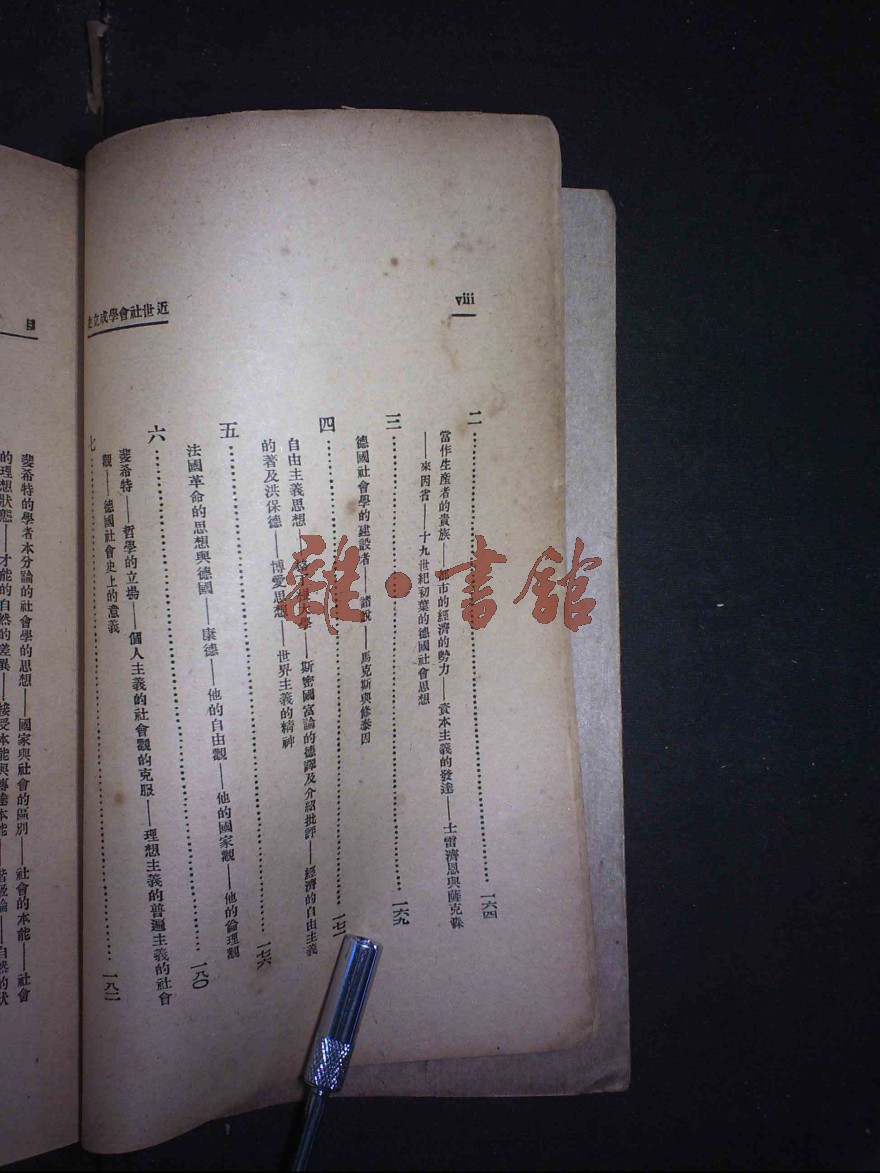 viii
近世社會學成立史
二……一六四
當作生產者的貴族——都市的經濟的勢力——資本主義的發達——士雷濟恩與薩克森
——來因省——十九世紀初葉的德國社會思想
三……一六九
德國社會學的建設者——諸說——馬克斯與修泰因
四……一七二
自由主義思想——大學——斯密國富論的德譯及介紹批評——經濟的自由主義
的著及洪保德——博愛思想——世界主義的精神
五……一七六
法國革命的思想與德國——康德——他的自由觀——他的國家觀——他的倫理觀
六……一八〇
斐希特——哲學的立場——個人主義的社會觀的克服——理想主義的普遍主義的社會
觀——德國社會史上的意義
七……一八二
目
斐希特的學者本分論的社會學的思想——國家與社會的區別——社會的本能——社會
的理想狀態——才能的自然的差異——接受本能與傳達本能——階級論——自然的狀
雜·書館